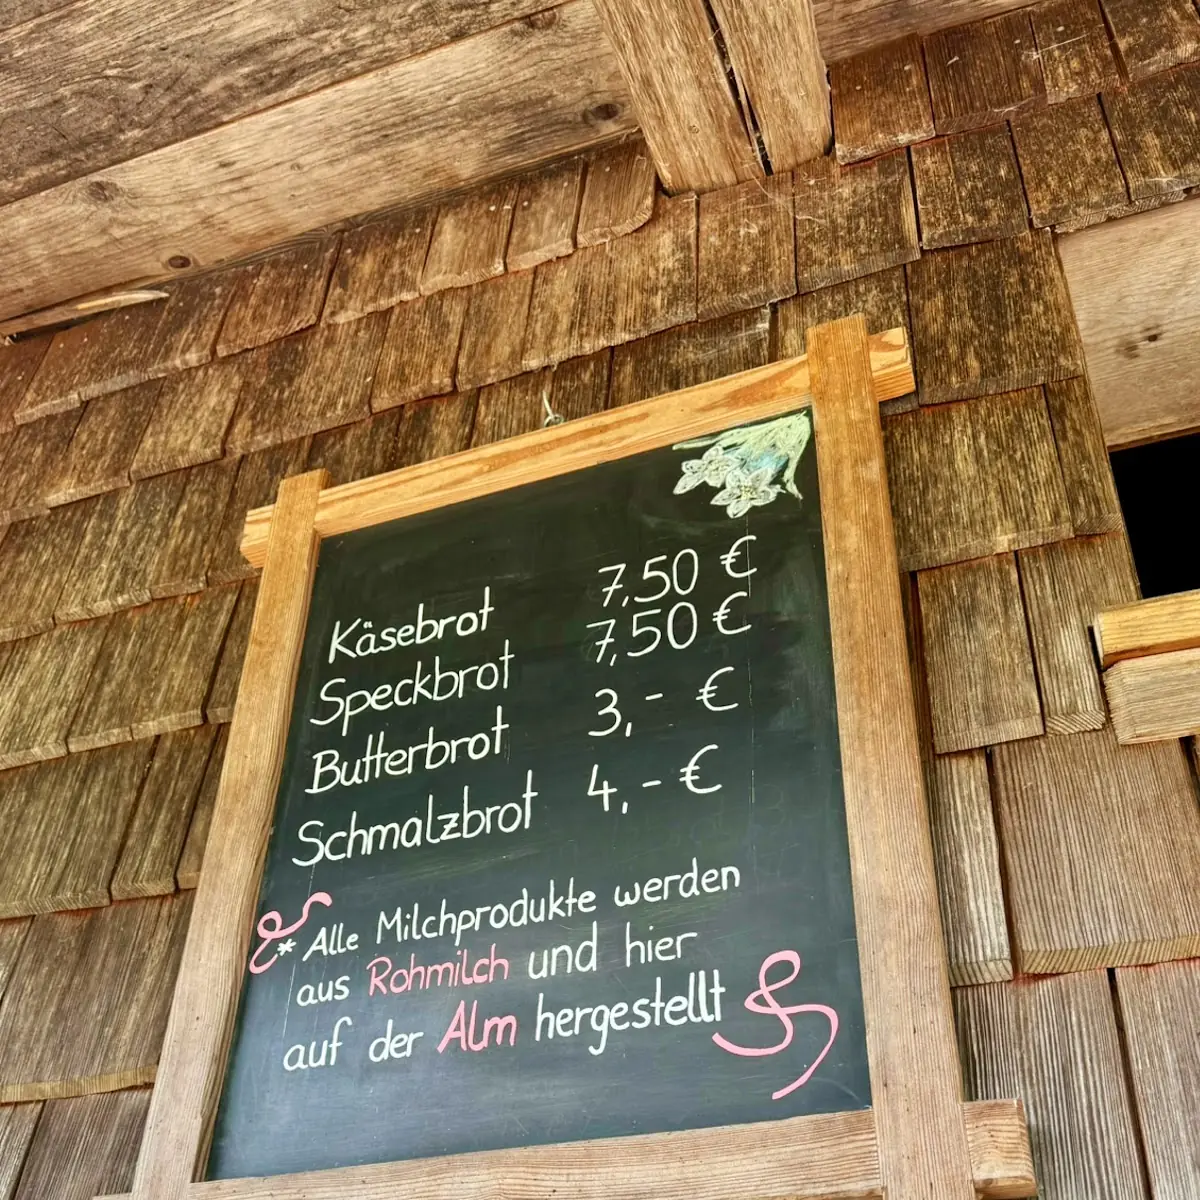 Käsebrot 7,50 €
Speckbrot 7,50 €
Butterbrot 3,- €
Schmalzbrot 4,- €
* Alle Milchprodukte werden
aus Rohmilch und hier
auf der Alm hergestellt